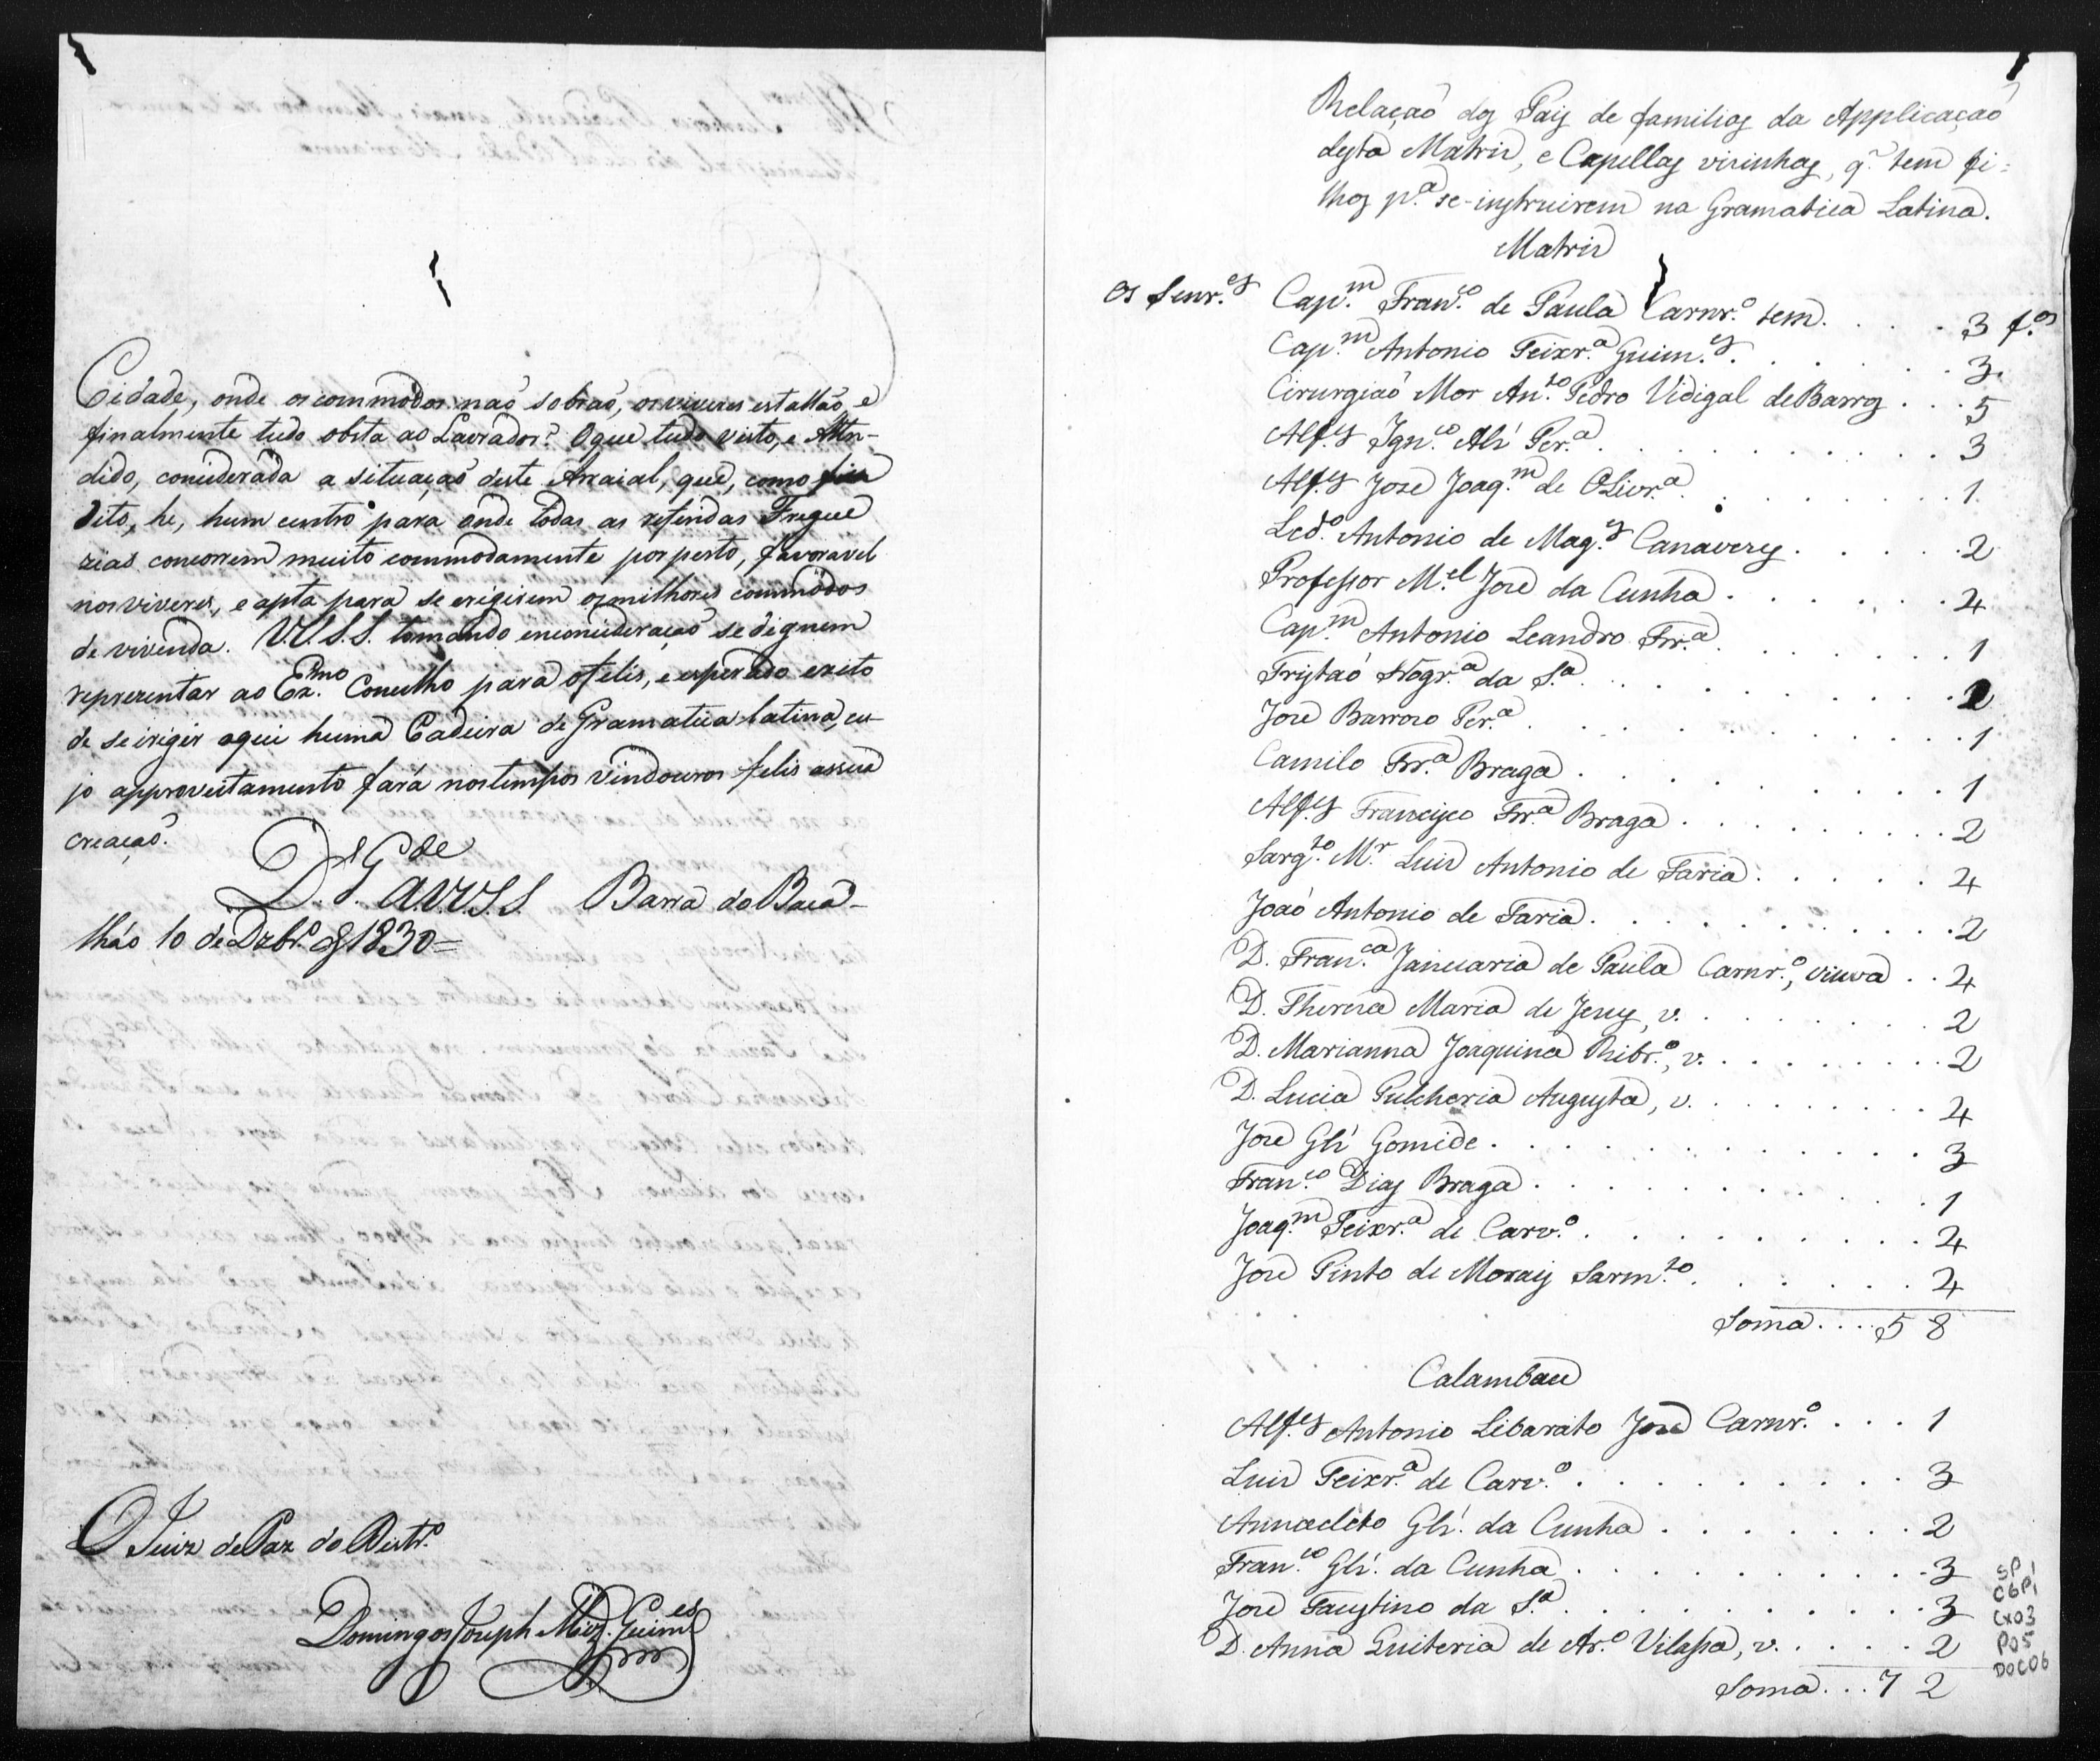 Cidade, onde os commodos naõ sobraõ, os viveres estallão, e
finalmente tudo obsta ao Lavrador? O que tudo visto, e Atten-
dido, considerada a situaçaõ deste Arraial, que, como fica
dito, he, hum centro para onde todas as referidas Fregue
zias concorrem muito commodamente por perto, favoravel
nos viveres, e apta para se erigirem os milhores commodos
de vivenda. VV.S.S. tomando em consideraçaõ se dignem
reprezentar ao Ex.mo Conselho para o felis, e esperado exito
de se irigir aqui huma Cadeira de Gramatica latina, cu-
jo approveitamento fará nos tempos vindouros felis assua
creaçaõ.
D.s G.de a VV.S.S. Barra do Baca-
lháo 10 de Dzbr.o de 1830=
O Juiz de Paz do Destr.o
Domingos Joseph Miz. Guim.es
Relaçaõ dos Pais de familias da Applicaçaõ
desta Matriz, e Capellas visinhas, q.' tem fi=
lhos p.a se-instruirem na Gramatica Latina.
Matriz
Os Senr.es Cap.m Fran.co de Paula Carnr.o tem . . . . 3 f.os
Cap.m Antonio Teixr.a Guim.es . . . . . . 3.
Cirurgiaõ Mor An.to Pedro Vidigal de Barros . . . 5
Alf.es Ign.co Alz' Per.a . . . . . . . . . 3
Alf.es Joze Joaq.m de OLivr.a . . . . . . . 1
Led.o Antonio de Mag.es Canaveses . . . . . 2
Professor M.el Joze da Cunha . . . . . . . 4
Cap.m Antonio Leandro Frr.a . . . . . . . 1
Tristaõ Nogr.a da S.a . . . . . . . . . 2
Joze Barrozo Per.a . . . . . . . . . . 1
Camilo Frr.a Braga . . . . . . . . . . 1
Alf.es Francisco Frr.a Braga . . . . . . . 2
Sarg.to M.r Luiz Antonio de Faria . . . . . 4
Joaõ Antonio de Faria . . . . . . . . . 2
D. Fran.ca Januaria de Paula Carnr.o, viuva . . 4
D. Thereza Maria de Jesus, v. . . . . . . . 2
D. Marianna Joaquina Ribr.o, v. . . . . . . 2
D. Lucia Pulcheria Augusta, v. . . . . . . 4
Joze Glz' Gomide . . . . . . . . . . . 3
Fran.co Dias Braga . . . . . . . . . . 1
Joaq.m Teixr.a de Carv.o . . . . . . . . 4
Joze Pinto de Morais Sarm.to . . . . . . . 4
Soma . . . . 5 8
Calambau
Alf.es Antonio Libarato Joze Carnr.o . . . 1
Luiz Teixr.a de Carv.o . . . . . . . . . 3
Annacleto Glz'. da Cunha . . . . . . . 2
Fran.co Glz'. da Cunha . . . . . . . . . 3
Joze Faustino da S.a . . . . . . . . . . 3
D. Anna Quiteria de Ar.o Vilassa, v. . . . . . 2
Soma . . . 7 2
SP1
C6P1
CX03
P05
DOC06